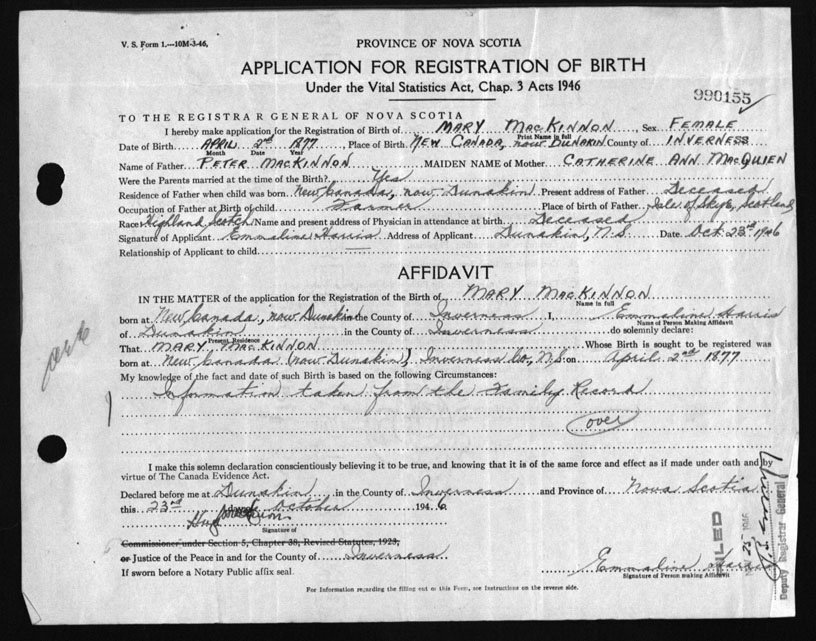 V. S. Form 1.—10M-3-46.
PROVINCE OF NOVA SCOTIA
APPLICATION FOR REGISTRATION OF BIRTH
Under the Vital Statistics Act, Chap. 3 Acts 1946
990155
TO THE REGISTRAR GENERAL OF NOVA SCOTIA
I hereby make application for the Registration of Birth of MARY MACKINNON, Sex FEMALE
Print Name in full
Date of Birth APRIL 2nd 1877, Place of Birth NEW CANADA, now DUNAKIN County of INVERNESS
Month Date Year
Name of Father PETER MACKINNON MAIDEN NAME of Mother CATHERINE ANN MACQUIEN
Were the Parents married at the time of the Birth? Yes
Residence of Father when child was born New Canada, now Dunakin Present address of Father Deceased
Occupation of Father at Birth of child Farmer Place of birth of Father Isle of Skye, Scotland
Race Highland Scotch Name and present address of Physician in attendance at birth Deceased
Signature of Applicant Emmaline Harris Address of Applicant Dunakin, N.S. Date Oct 23rd 1946
Relationship of Applicant to child
AFFIDAVIT
IN THE MATTER of the application for the Registration of the Birth of MARY MACKINNON
Name in full
born at New Canada, now Dunakin the County of Inverness I, Emmaline Harris
Name of Person Making Affidavit
of Dunakin in the County of Inverness do solemnly declare:
Present Residence
That MARY MACKINNON Whose Birth is sought to be registered was
born at New Canada (now Dunakin) Inverness Co, N.S. on April 2nd 1877
My knowledge of the fact and date of such Birth is based on the following Circumstances:
Information taken from the Family Record
over
I make this solemn declaration conscientiously believing it to be true, and knowing that it is of the same force and effect as if made under oath and by
virtue of The Canada Evidence Act.
Declared before me at Dunakin in the County of Inverness and Province of Nova Scotia
this 23rd October 1946
Signature of
Commissioner under Section 5, Chapter 38, Revised Statutes, 1923,
or Justice of the Peace in and for the County of Inverness
If sworn before a Notary Public affix seal.
Emmaline Harris
Signature of Person making Affidavit
For Information regarding the filling out of this Form, see Instructions on the reverse side.
FILED
25 1946
Deputy Registrar General